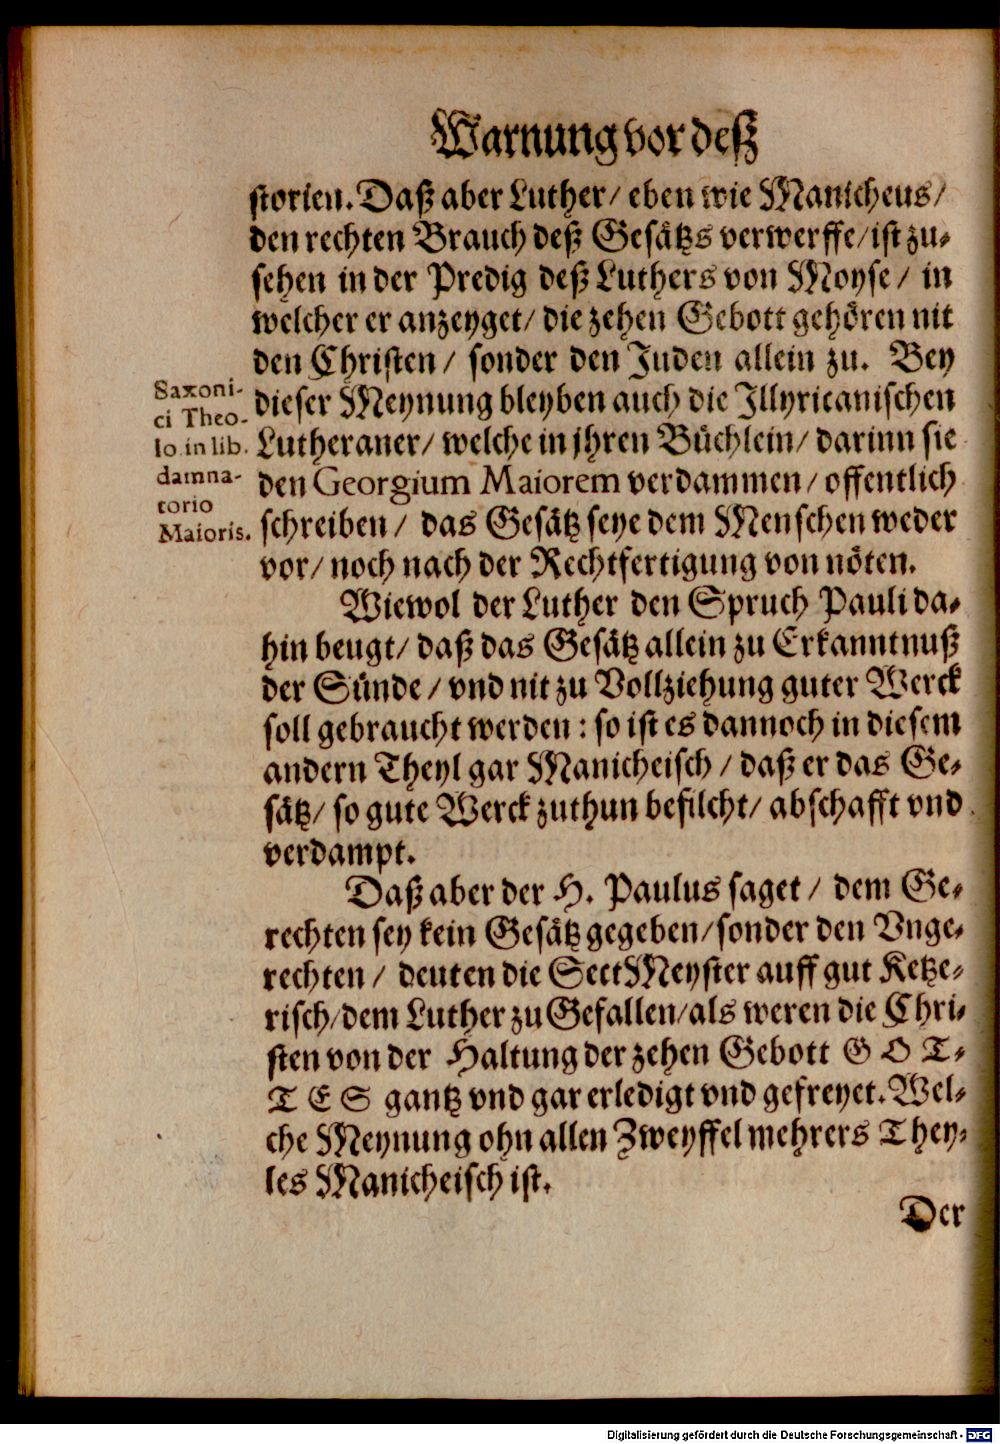 Warnung vor deß
storien. Daß aber Luther/ eben wie Manicheus/
den rechten Brauch deß Gesätzs verwerffe/ ist zu-
sehen in der Predig deß Luthers von Moyse/ in
welcher er anzeyget/ die zehen Gebott gehören nit
den Christen/ sonder den Juden allein zu. Bey
dieser Meynung bleyben auch die Illyricanischen
Lutheraner/ welche in jhren Büchlein/ darinn sie
den Georgium Maiorem verdammen/ offentlich
schreiben/ das Gesätz seye dem Menschen weder
vor/ noch nach der Rechtfertigung von nöten.
Saxoni-
ci Theo-
lo in lib.
damna-
torio
Maioris.
Wiewol der Luther den Spruch Pauli da-
hin beugt/ daß das Gesätz allein zu Erkanntnuß
der Sünde/ vnd nit zu Vollziehung guter Werck
soll gebraucht werden: so ist es dannoch in diesem
andern Theyl gar Manicheisch/ daß er das Ge-
sätz/ so gute Werck zuthun befilcht/ abschafft vnd
verdampt.
Daß aber der H. Paulus saget/ dem Ge-
rechten sey kein Gesätz gegeben/ sonder den Vnge-
rechten/ deuten die SectMeyster auff gut Ketze-
risch/ dem Luther zu Gefallen/ als weren die Chri-
sten von der Haltung der zehen Gebott G O T-
T E S gantz vnd gar erledigt vnd gefreyet. Wel-
che Meynung ohn allen Zweyffel mehrers They-
les Manicheisch ist.
Der
Digitalisierung gefördert durch die Deutsche Forschungsgemeinschaft - DFG